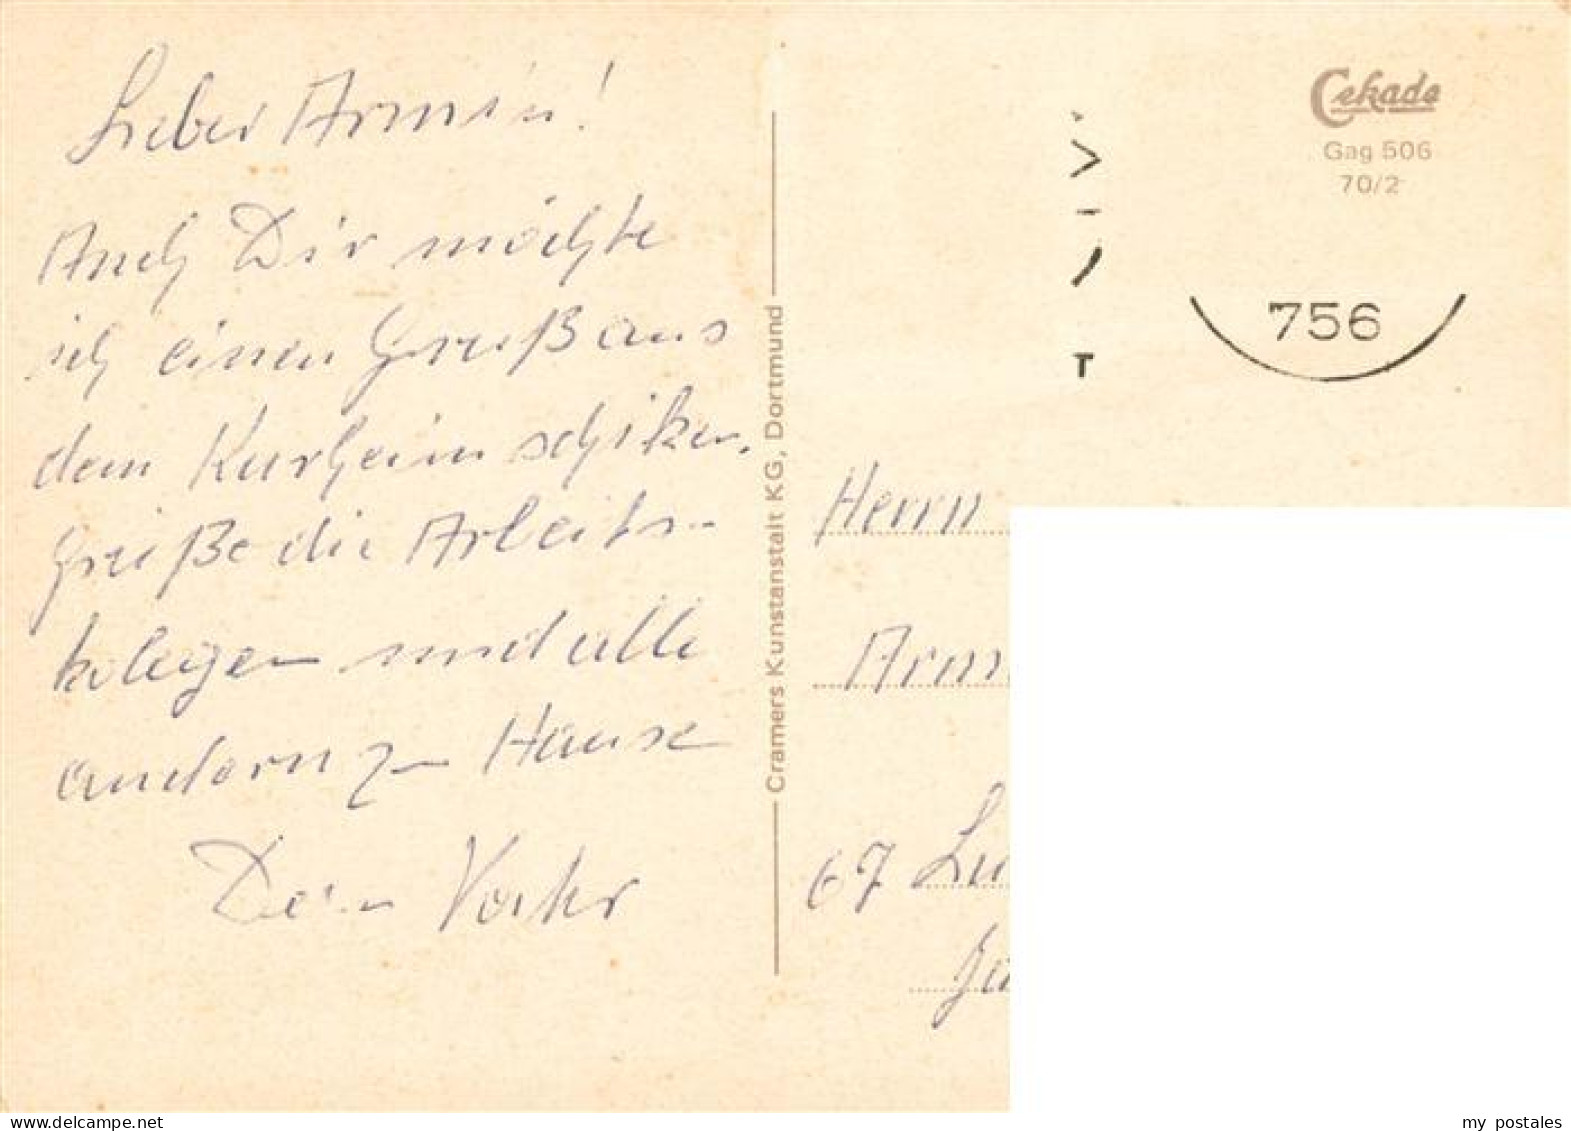 Lieber Armin!
Auch Dir möchte
ich einen Gruß aus
dem Kurheim schiken.
Grüße die Arbeits-
kolegen und alle
andern zu Hause
Dein Vater
Cramers Kunstanstalt KG, Dortmund
Cekade
Gag 506
70/2
756
T
Herrn
Armi
67 Lu
delcampe.net
my_postales